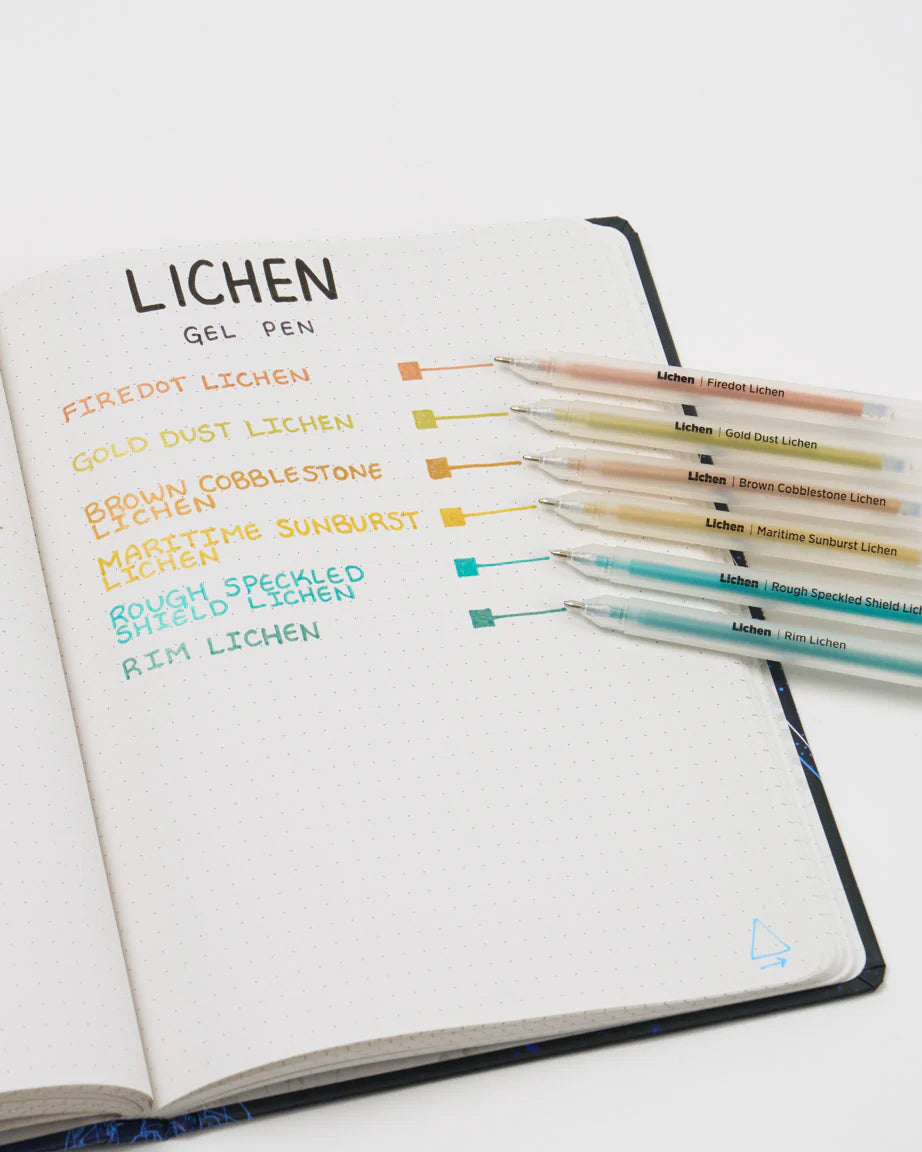 LICHEN
GEL PEN
FIREDOT LICHEN
GOLD DUST LICHEN
BROWN COBBLESTONE
LICHEN
MARITIME SUNBURST
LICHEN
ROUGH SPECKLED
SHIELD LICHEN
RIM LICHEN
Lichen | Firedot Lichen
Lichen | Gold Dust Lichen
Lichen | Brown Cobblestone Lichen
Lichen | Maritime Sunburst Lichen
Lichen | Rough Speckled Shield Lich
Lichen | Rim Lichen